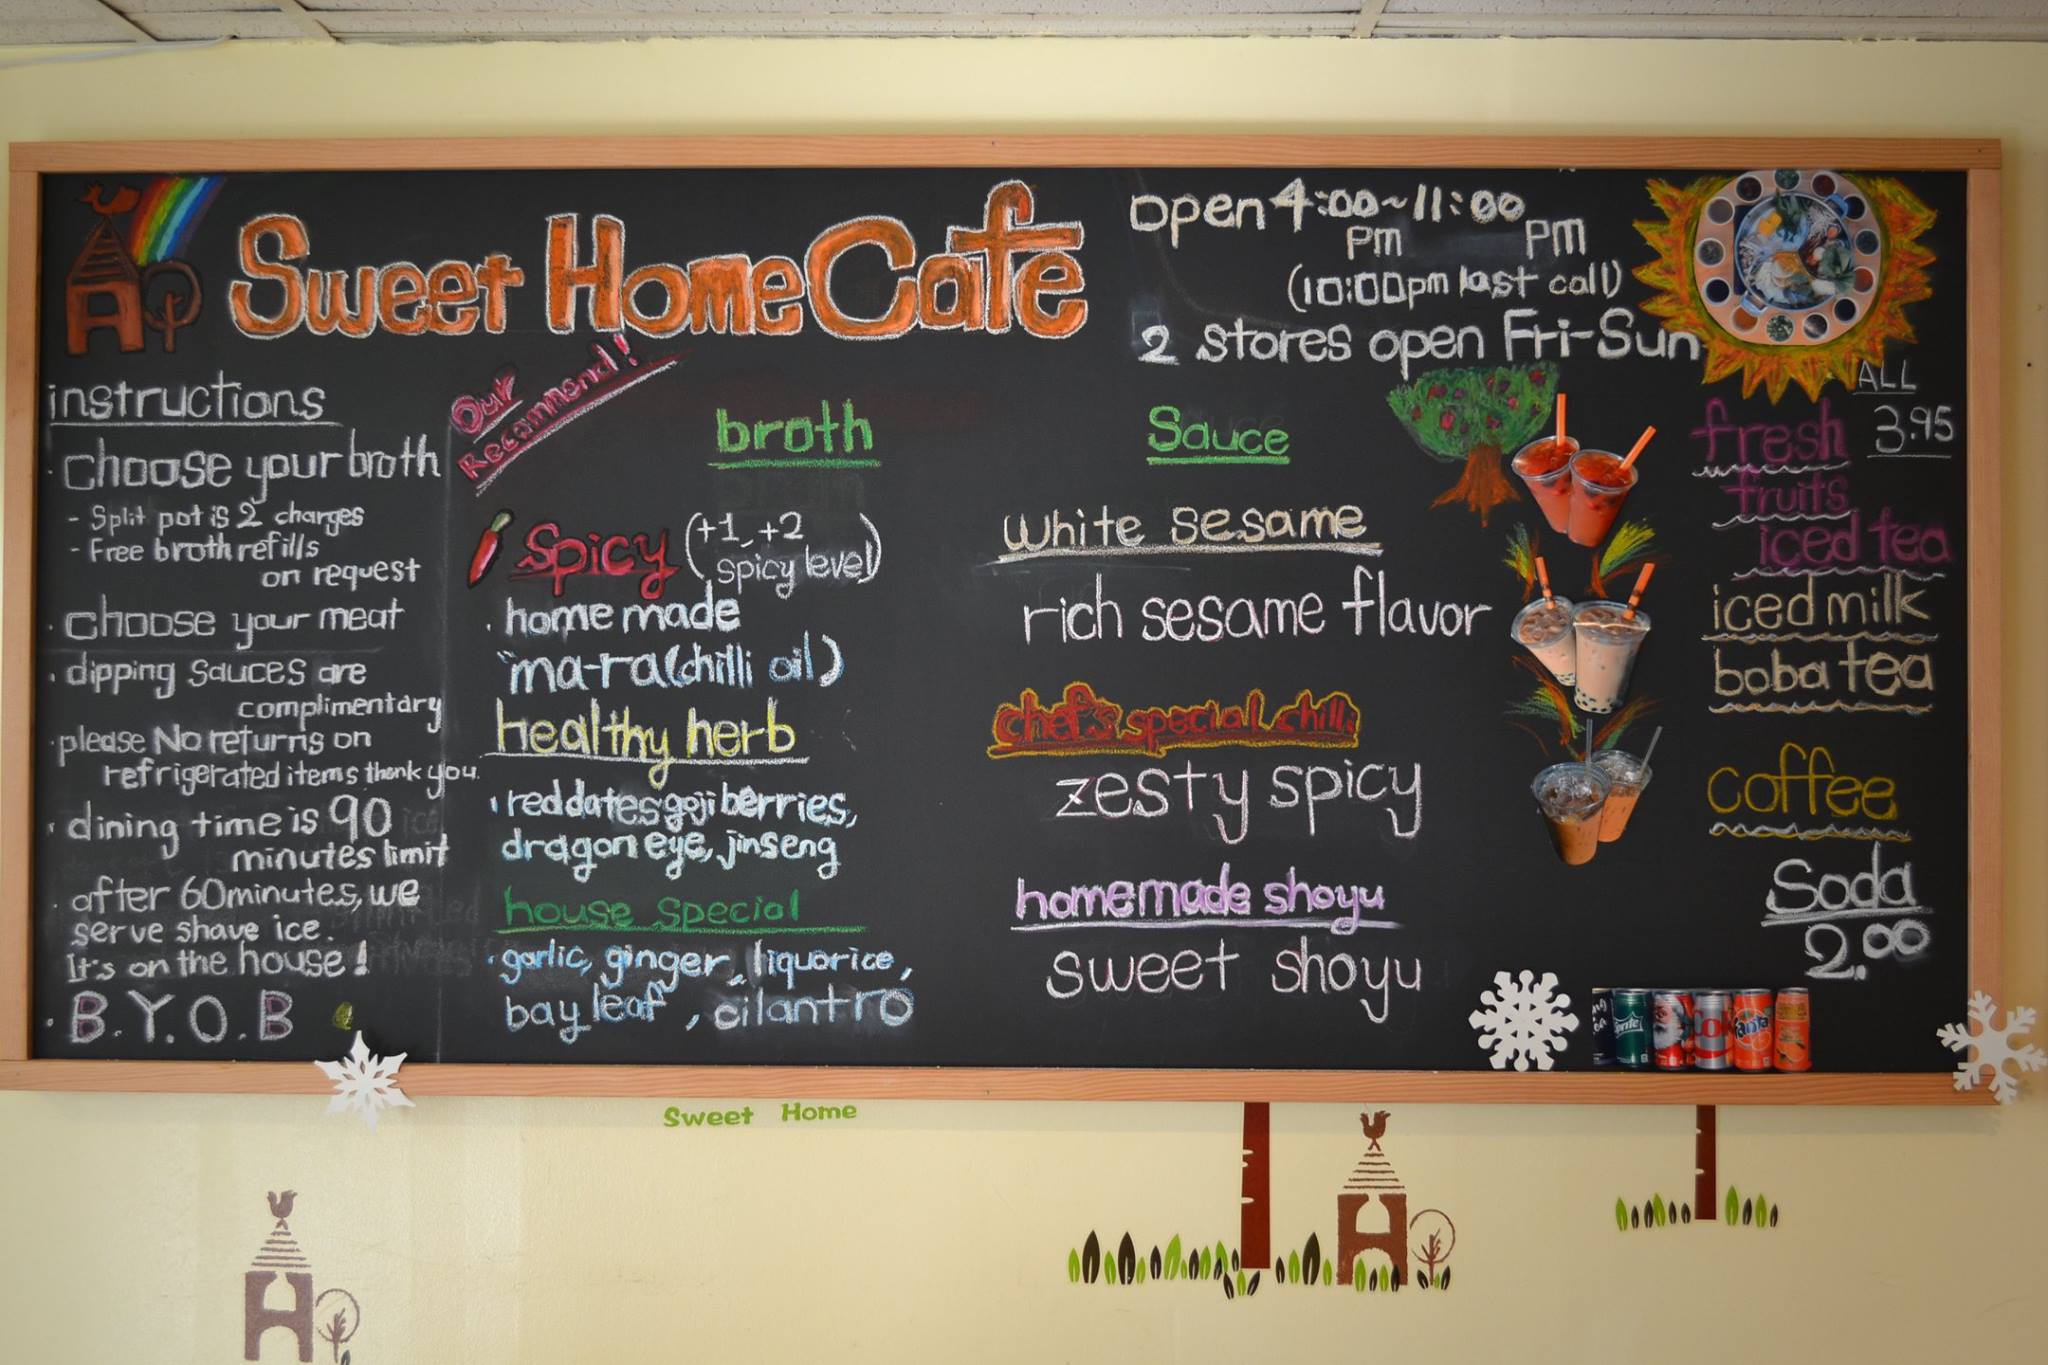 Sweet Home Cafe
Open 4:00~11:00
pm pm
(10:00pm last call)
2 stores open Fri-Sun
instructions
· choose your broth
- Split pot is 2 charges
- Free broth refills
on request
· choose your meat
· dipping sauces are
complimentary
· please No returns on
refrigerated items thank you.
· dining time is 90
minutes limit
· after 60 minutes, we
serve shave ice.
It's on the house!
· B.Y.O.B
Our
Recommend!
broth
Spicy (+1, +2
spicy level)
· home made
"ma-ra (chilli oil)
healthy herb
· red dates goji berries,
dragon eye, jinseng
house special
· garlic, ginger, liquorice,
bay leaf, cilantro
Sauce
white sesame
rich sesame flavor
chef's special chilli
zesty spicy
homemade shoyu
sweet shoyu
ALL
3.95
fresh
fruits
iced tea
iced milk
boba tea
coffee
Soda
2.00
Sprite
Coke
Fanta
Sweet Home